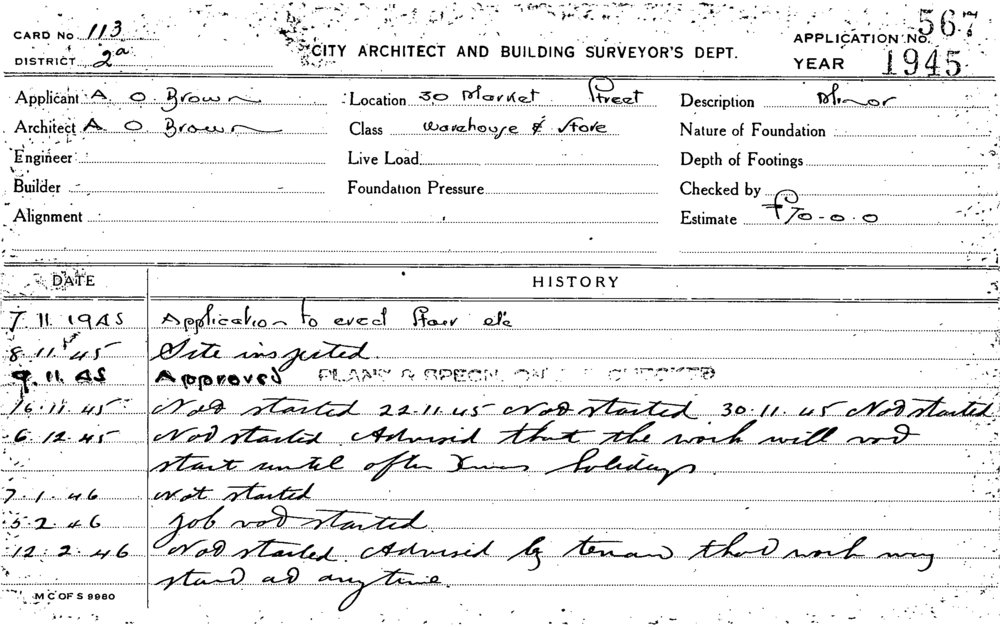 CARD No 113
DISTRICT 2a
CITY ARCHITECT AND BUILDING SURVEYOR'S DEPT.
APPLICATION No. 567
YEAR 1945
Applicant A O Brown
Location 30 Market Street
Description Minor
Architect A O Brown
Class Warehouse & Store
Nature of Foundation
Engineer
Live Load
Depth of Footings
Builder
Foundation Pressure
Checked by
Alignment
Estimate £70-0-0
DATE HISTORY
7 11 1945 Application to erect Stair etc
8.11.45 Site inspected.
9.11.45 Approved PLANS & SPECN. ON CHECKED
16.11.45 Not started 22.11.45 Not started 30.11.45 Not started
6.12.45 Not started Advised that the work will not
start until after Xmas holidays.
7.1.46 Not started
5.2.46 Job not started
12.2.46 Not started. Advised by tenan that work may
start at anytime.
M C OF S 9980